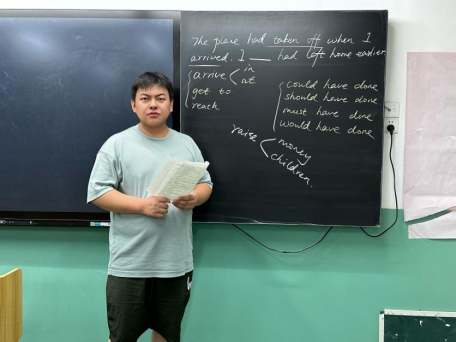 The plane had taken off when I
arrived. I ___ had left home earlier.
arrive in
at
get to
reach
could have done
should have done
must have done
would have done
raise money
children.